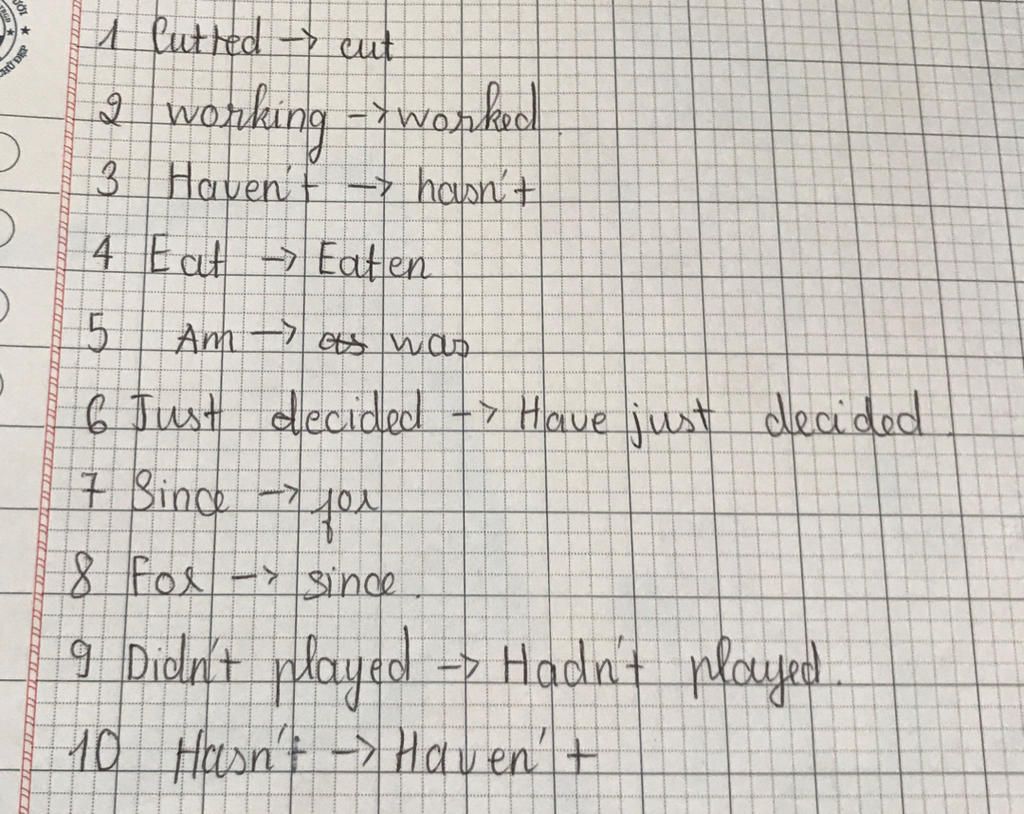 1 Cutted → cut
2 working → worked
3 Haven't → hasn't
4 Eat → Eaten
5 Am → was
6 Just decided → Have just decided
7 Since → for
8 For → since.
9 Didn't played → Hadn't played.
10 Hasn't → Haven't